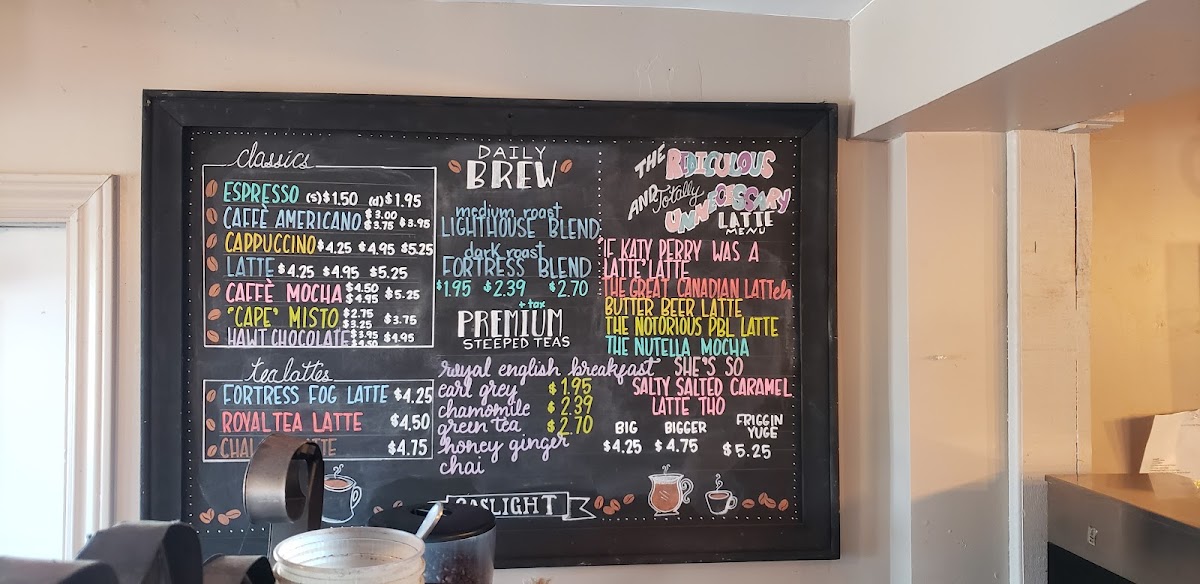 classics
ESPRESSO (s) $1.50 (d) $1.95
CAFFÈ AMERICANO $3.00 $3.75 $3.95
CAPPUCCINO $4.25 $4.95 $5.25
LATTE $4.25 $4.95 $5.25
CAFFÈ MOCHA $4.50 $4.95 $5.25
"CAPE" MISTO $2.75 $3.25 $3.75
HAWT CHOCOLATE $3.95 $4.50 $4.95
tea lattes
FORTRESS FOG LATTE $4.25
ROYAL TEA LATTE $4.50
CHAI $4.75
DAILY
BREW
medium roast
LIGHTHOUSE BLEND
dark roast
FORTRESS BLEND
$1.95 $2.39 $2.70
+ tax
PREMIUM
STEEPED TEAS
royal english breakfast
earl grey $1.95
chamomile $2.39
green tea $2.70
honey ginger
chai
GASLIGHT
THE RIDICULOUS
AND Totally
UNNECESSARY
LATTE
MENU
'IF KATY PERRY WAS A
LATTE' LATTE
THE GREAT CANADIAN LATTeh
BUTTER BEER LATTE
THE NOTORIOUS PBL LATTE
THE NUTELLA MOCHA
SHE'S SO
SALTY SALTED CARAMEL
LATTE THO
BIG BIGGER FRIGGIN YUGE
$4.25 $4.75 $5.25